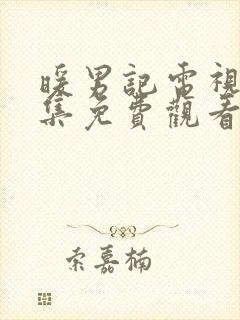 暖男記電視
集免費觀看
索嘉楠